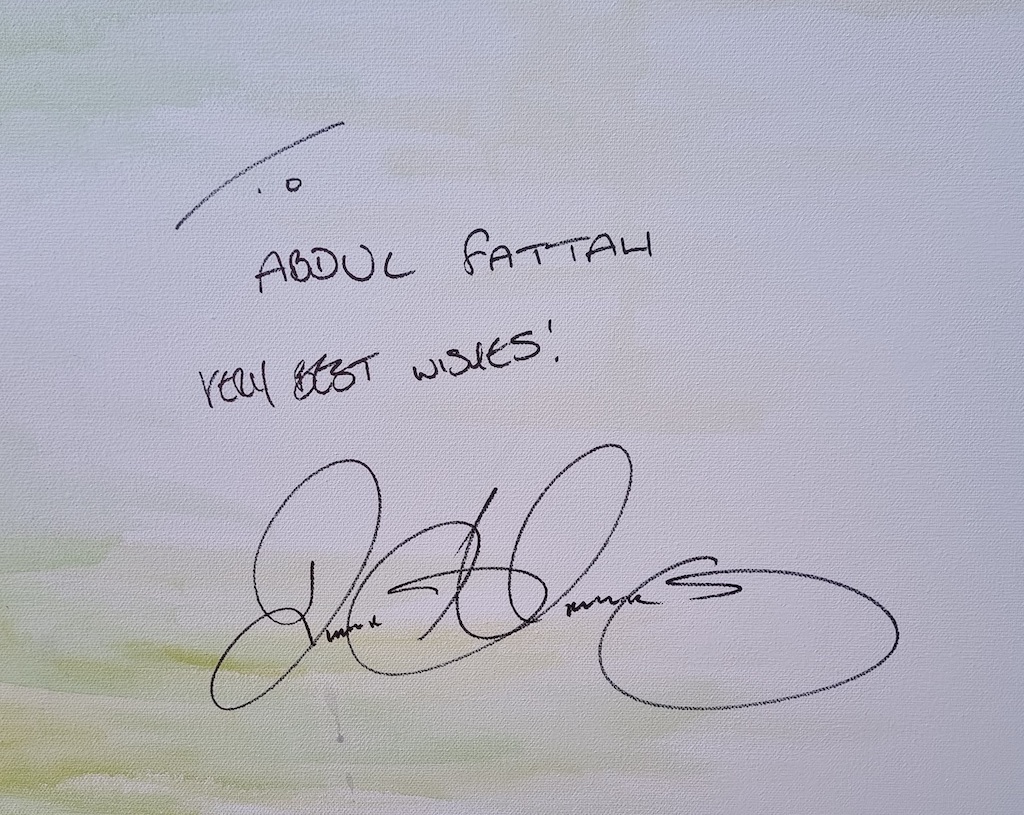 To
ABDUL FATTAH
VERY BEST WISHES!